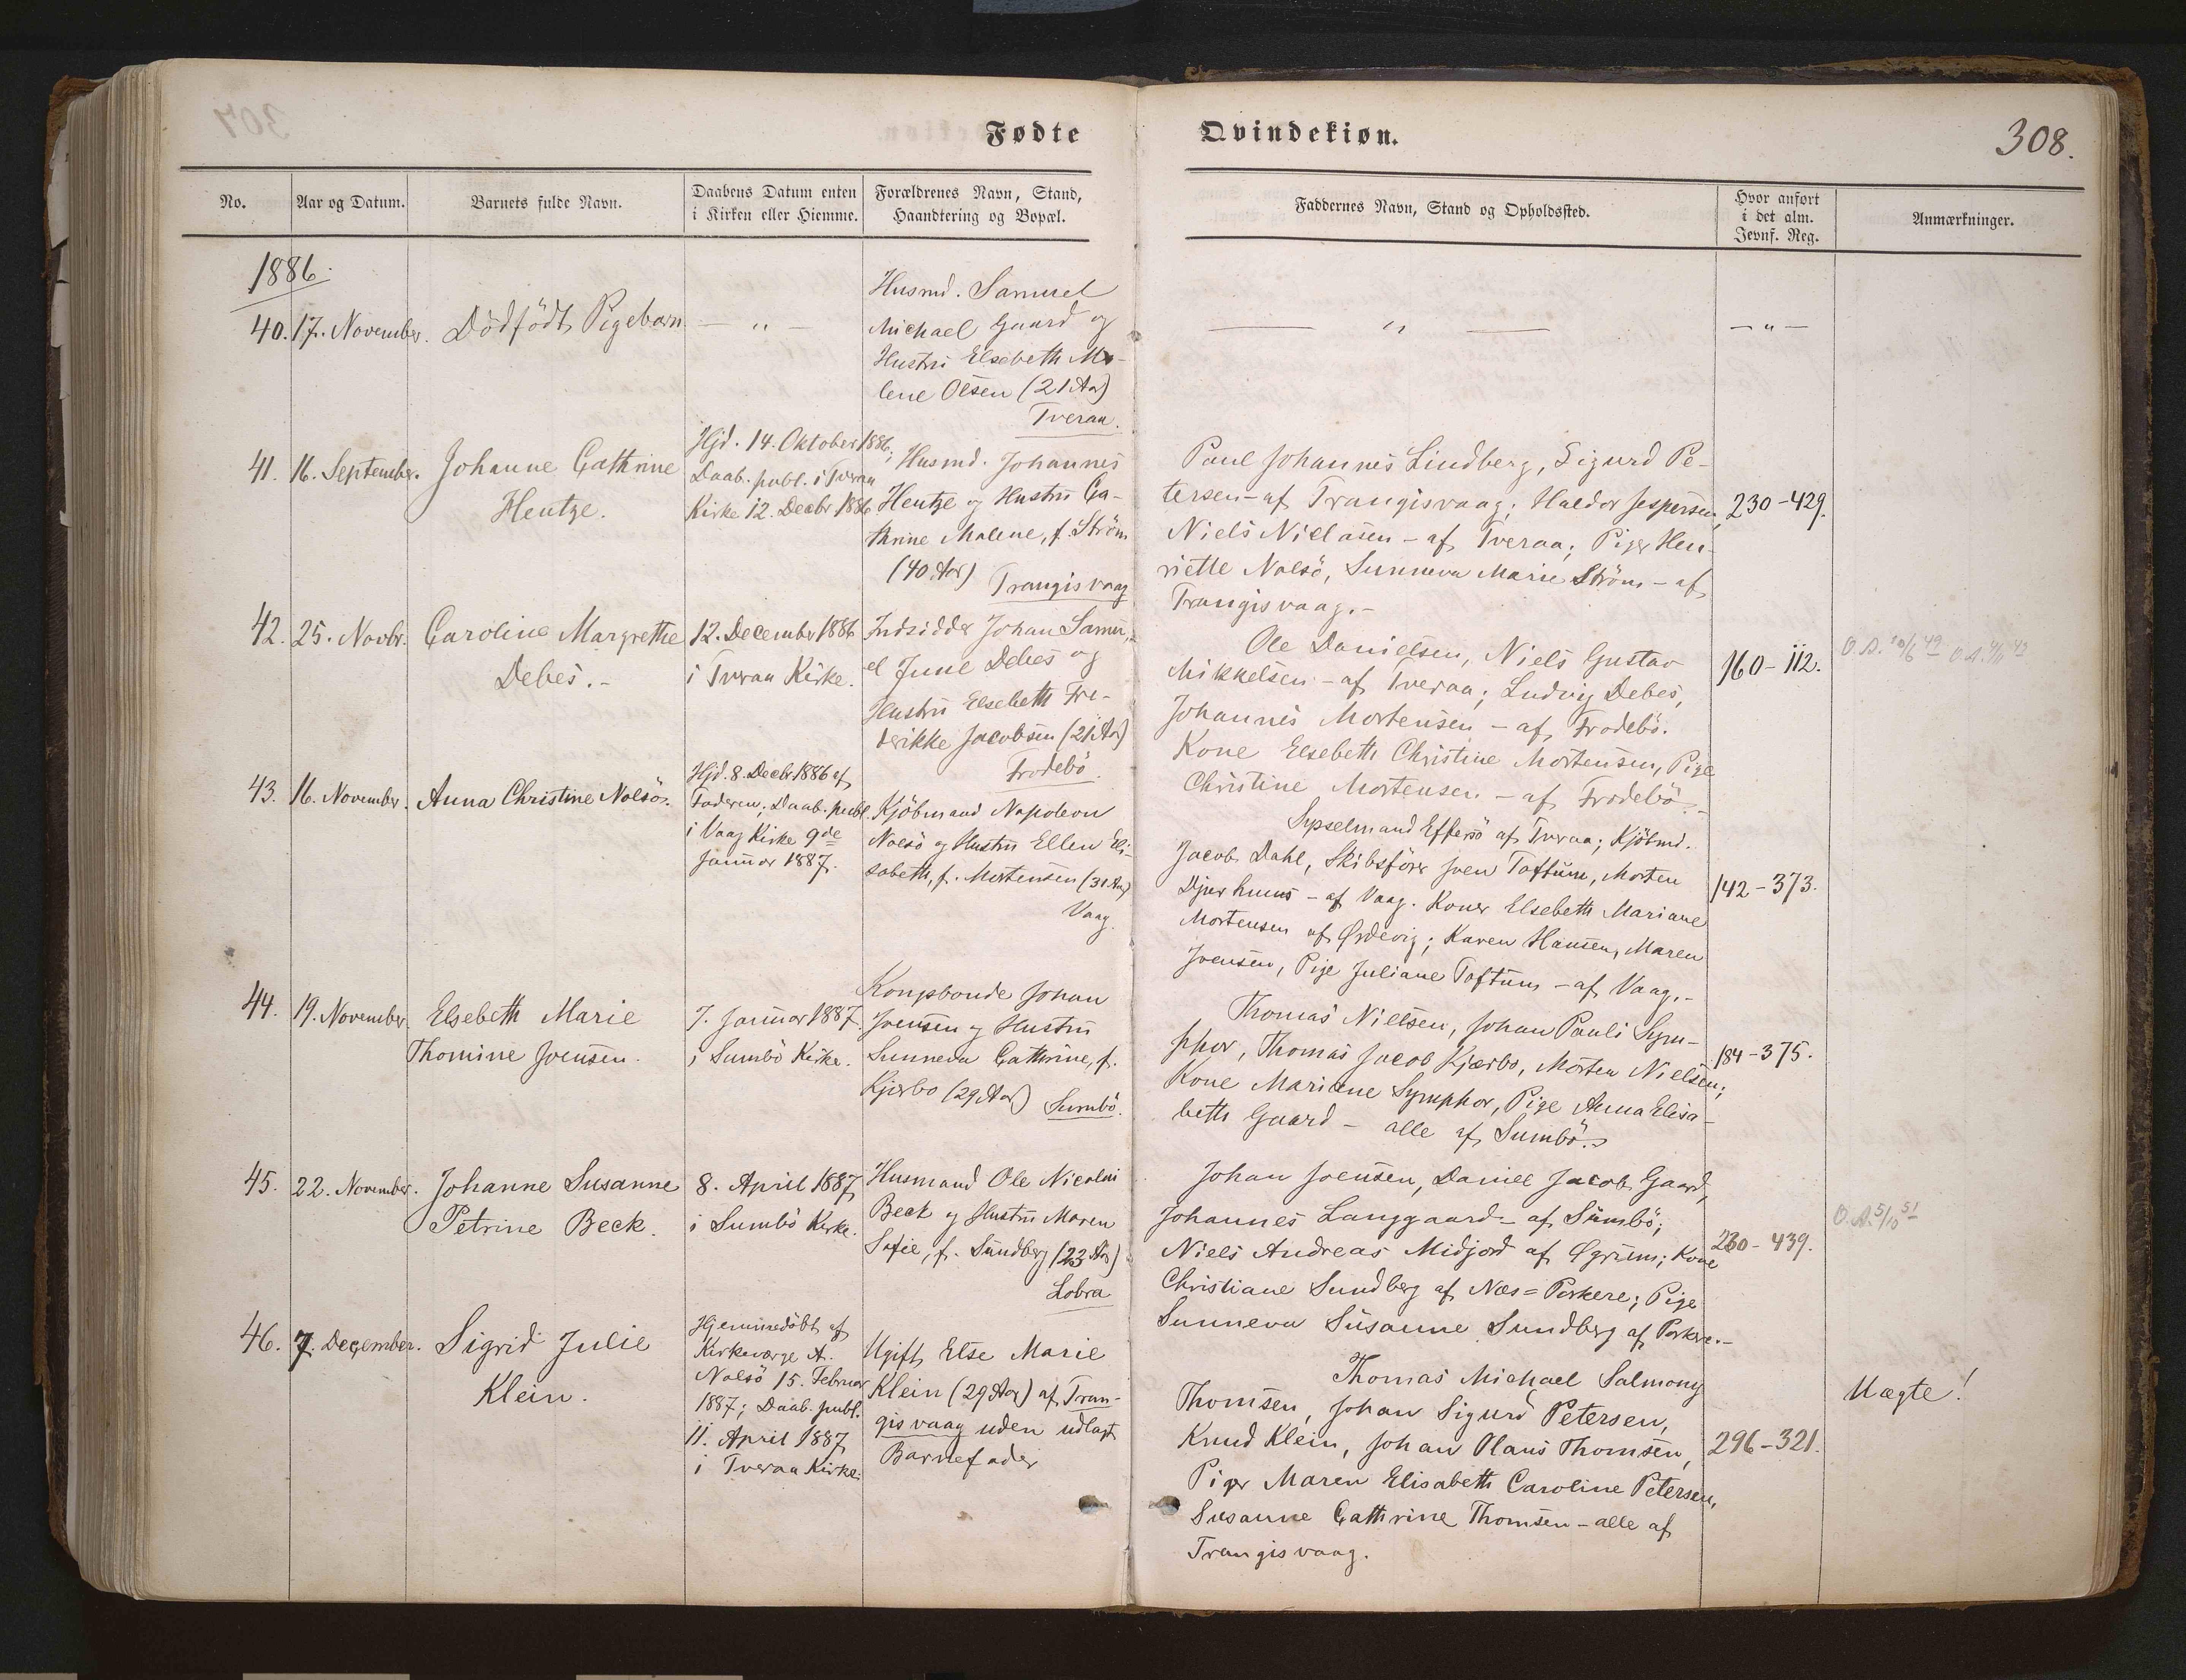 308.
Fødte Qvindekiøn.
No. Aar og Datum. Barnets fulde Navn. Daabens Datum enten i Kirken eller Hiemme. Forældrenes Navn, Stand, Haandtering og Bopæl. Faddernes Navn, Stand og Opholdssted. Hvor anført i det alm. Jevnf. Reg. Anmærkninger.
1886.
40. 17. November. Dödfödt Pigebarn — „ —
Husmd. Samuel
Michael Gaard og
Hustru Elsebeth Ma-
lene Olsen (21 Aar)
Tveraa.
— „ —
— „ —
41. 16. September. Johanne Cathrine
Hentze.
Hjd. 14. Oktober 1886;
Daab. publ. i Tveraa
Kirke 12. Decbr 1886
Husmd. Johannes
Hentze og Hustru Ca-
thrine Malene, f. Ström
(40 Aar)
Trangisvaag
Paul Johannes Lindberg, Sigurd Pe-
tersen - af Trangisvaag; Haldor Jespersen,
Niels Niclasen - af Tveraa; Piger Hen-
riette Nolsö, Sunneva Marie Ström - af
Trangisvaag. -
230-429.
42. 25. Novbr. Caroline Margrethe
Debes. -
12. December 1886
i Tveraa Kirke.
Indsidder Johan Samu-
el June Debes og
Hustru Elsebeth Fre-
derikke Jacobsen (21 Aar)
Frodebö.
Ole Danielsen, Niels Gustav
Mikkelsen - af Tveraa; Ludvig Debes,
Johannes Mortensen - af Frodebö.
Kone Elsebeth Christine Mortensen, Pige
Christine Mortensen - af Frodebö. -
160-112.
43. 16. November. Anna Christine Nolsö.
Hjd. 8. Decbr. 1886 af
Faderen; Daab. publ.
i Vaag Kirke 9de
Januar 1887.
Kjöbmand Napoleon
Nolsö og Hustru Ellen Eli-
sabeth, f. Mortensen (31 Aar)
Vaag.
Sysselmand Effersö af Tveraa; Kjöbmd.
Jacob Dahl, Skibsförer Joen Toftum, Morten
Djurhuus - af Vaag. Koner Elsebeth Mariane
Mortensen af Ørdevig; Karen Hansen, Maren
Joensen, Pige Juliane Toftum - af Vaag. -
142-373.
44. 19. November. Elsebeth Marie
Thomine Joensen.
7. Januar 1887.
i Sumbö Kirke.
Kongsbonde Johan
Joensen og Hustru
Sunneva Cathrine, f.
Kjærbo (29 Aar) Sumbö.
Thomas Nielsen, Johan Pauli Sym-
phor, Thomas Jacob Kjærbo, Morten Nielsen;
Kone Mariane Symphor, Pige Anna Elisa-
beth Gaard - alle af Sumbö.
184-375.
45. 22. November. Johanne Susanne
Petrine Beck.
8. April 1887,
i Sumbö Kirke.
Husmand Ole Nicolai
Beck og Hustru Maren
Sofie, f. Sundberg (23 Aar)
Lobra
Johan Joensen, Daniel Jacob Gaard,
Johannes Langgaard - af Sumbö;
Niels Andreas Midjord af Øgrum; Kone
Christiane Sundberg af Næs = Porkere; Pige
Sunneva Susanne Sundberg af Porkere. -
230-439.
46. 7. December. Sigrid Julie
Klein.
Hjemmedöbt af
Kirkeværge A.
Nolsö 15. Februar
1887; Daab. publ.
11. April 1887
i Tveraa Kirke.
Ugift Else Marie
Klein (29 Aar) af Tran-
gisvaag uden udlagt
Barnefader
Thomas Michael Salmony
Thomsen, Johan Sigurd Petersen,
Knud Klein, Johan Olaus Thomsen,
Piger Maren Elisabeth Caroline Petersen,
Susanne Cathrine Thomsen - alle af
Trangisvaag.
296-321.
Uægte!